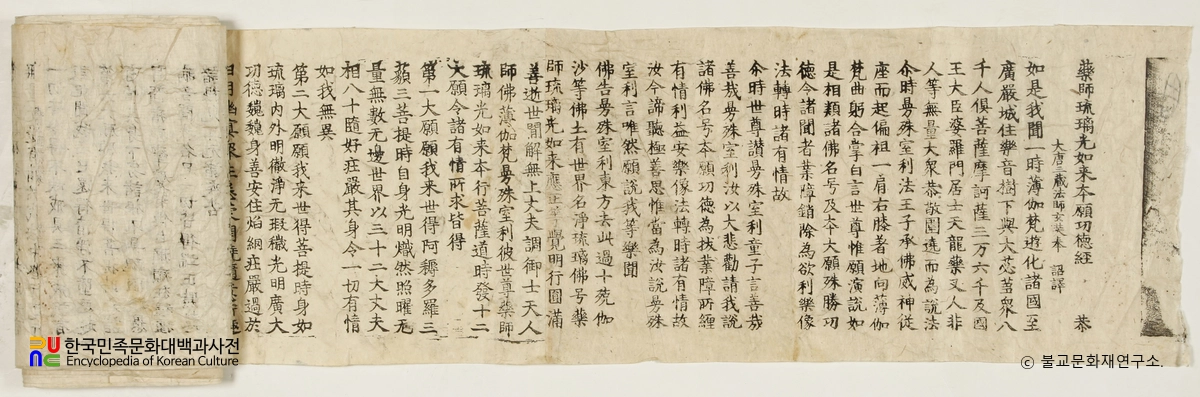 藥師琉璃光如來本願功德經 恭
大唐三藏法師玄奘奉 詔譯
如是我聞一時薄伽梵遊化諸國至
廣嚴城住樂音樹下與大苾芻衆八
千人俱菩薩摩訶薩三万六千及國
王大臣婆羅門居士天龍藥叉人非
人等無量大衆恭敬圍遶而為說法
尒時曼殊室利法王子承佛威神從
座而起偏袒一肩右膝著地向薄伽
梵曲躬合掌白言世尊惟願演說如
是相類諸佛名号及本大願殊勝功
德令諸聞者業障銷除為欲利樂像
法轉時諸有情故
尒時世尊讚曼殊室利童子言善哉
善哉曼殊室利汝以大悲勸請我說
諸佛名号本願功德為拔業障所纏
有情利益安樂像法轉時諸有情故
汝今諦聽極善思惟當為汝說曼殊
室利言唯然願說我等樂聞
佛告曼殊室利東方去此過十殑伽
沙等佛土有世界名淨琉璃佛号藥
師琉璃光如來應正等覺明行圓滿
善逝世間解無上丈夫調御士天人
師佛薄伽梵曼殊室利彼世尊藥師
琉璃光如來本行菩薩道時發十二
大願令諸有情所求皆得
第一大願願我来世得阿耨多羅三
藐三菩提時自身光明熾然照曜无
量無數无邊世界以三十二大丈夫
相八十隨好莊嚴其身令一切有情
如我無異
第二大願願我来世得菩提時身如
琉璃內外明徹淨无瑕穢光明廣大
功德巍巍身善安住焰網莊嚴過於
日月
한국민족문화대백과사전
Encyclopedia of Korean Culture
ⓒ 불교문화재연구소.